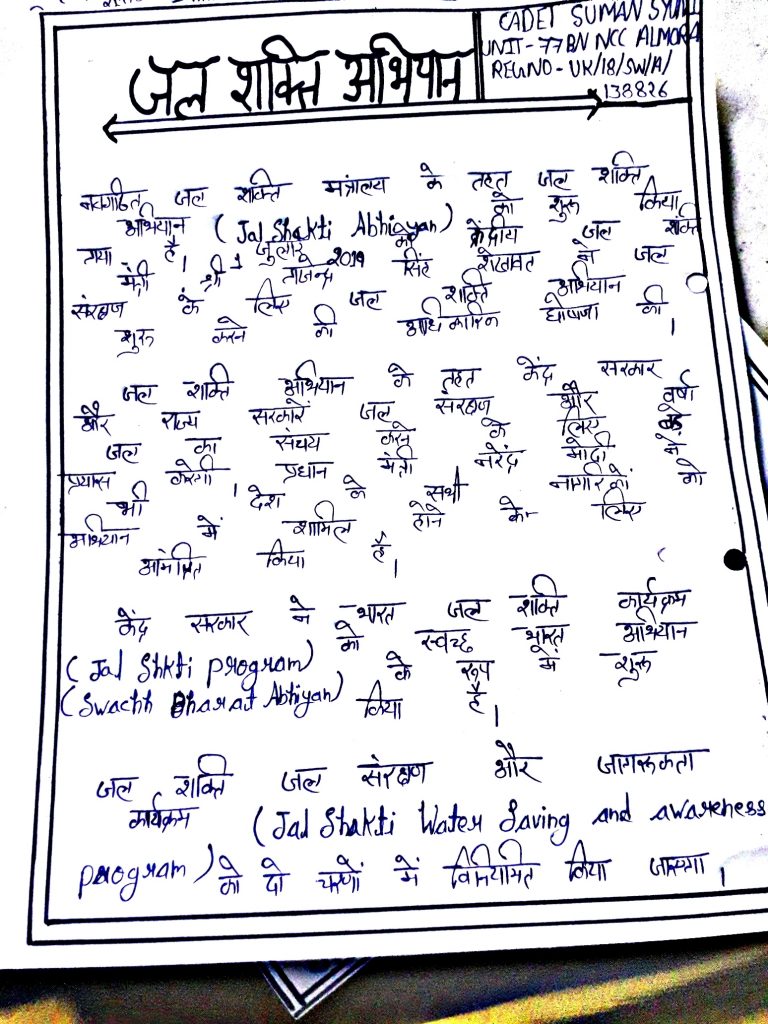 CADET SUMAN
UNIT - 77 BN NCC ALMORA
REGNO - UK/18/SW/A/
138826
जल शक्ति अभियान
नवगठित जल शक्ति मंत्रालय के तहत जल शक्ति
अभियान (Jal Shakti Abhiyan) को शुरू किया
गया है। 1 जुलाई 2019 को केंद्रीय जल शक्ति
मंत्री श्री गजेन्द्र सिंह शेखावत ने जल
संरक्षण के लिए जल शक्ति अभियान
शुरू करने की आधिकारिक घोषणा की।
जल शक्ति अभियान के तहत केंद्र सरकार
और राज्य सरकारें जल संरक्षण और वर्षा
जल का संचय करने के लिए बड़े
प्रयास करेगी। प्रधान मंत्री नरेंद्र मोदी ने
भी देश के सभी नागरिकों को
अभियान में शामिल होने के लिए
आमंत्रित किया है।
केंद्र सरकार ने भारत जल शक्ति कार्यक्रम
(Jal Shkti program) को स्वच्छ भारत अभियान
(Swachh Bharat Abhiyan) के रूप में शुरू
किया है।
जल शक्ति जल संरक्षण और जागरूकता
कार्यक्रम (Jal Shakti Water Saving and awareness
program) को दो चरणों में किया जाएगा।